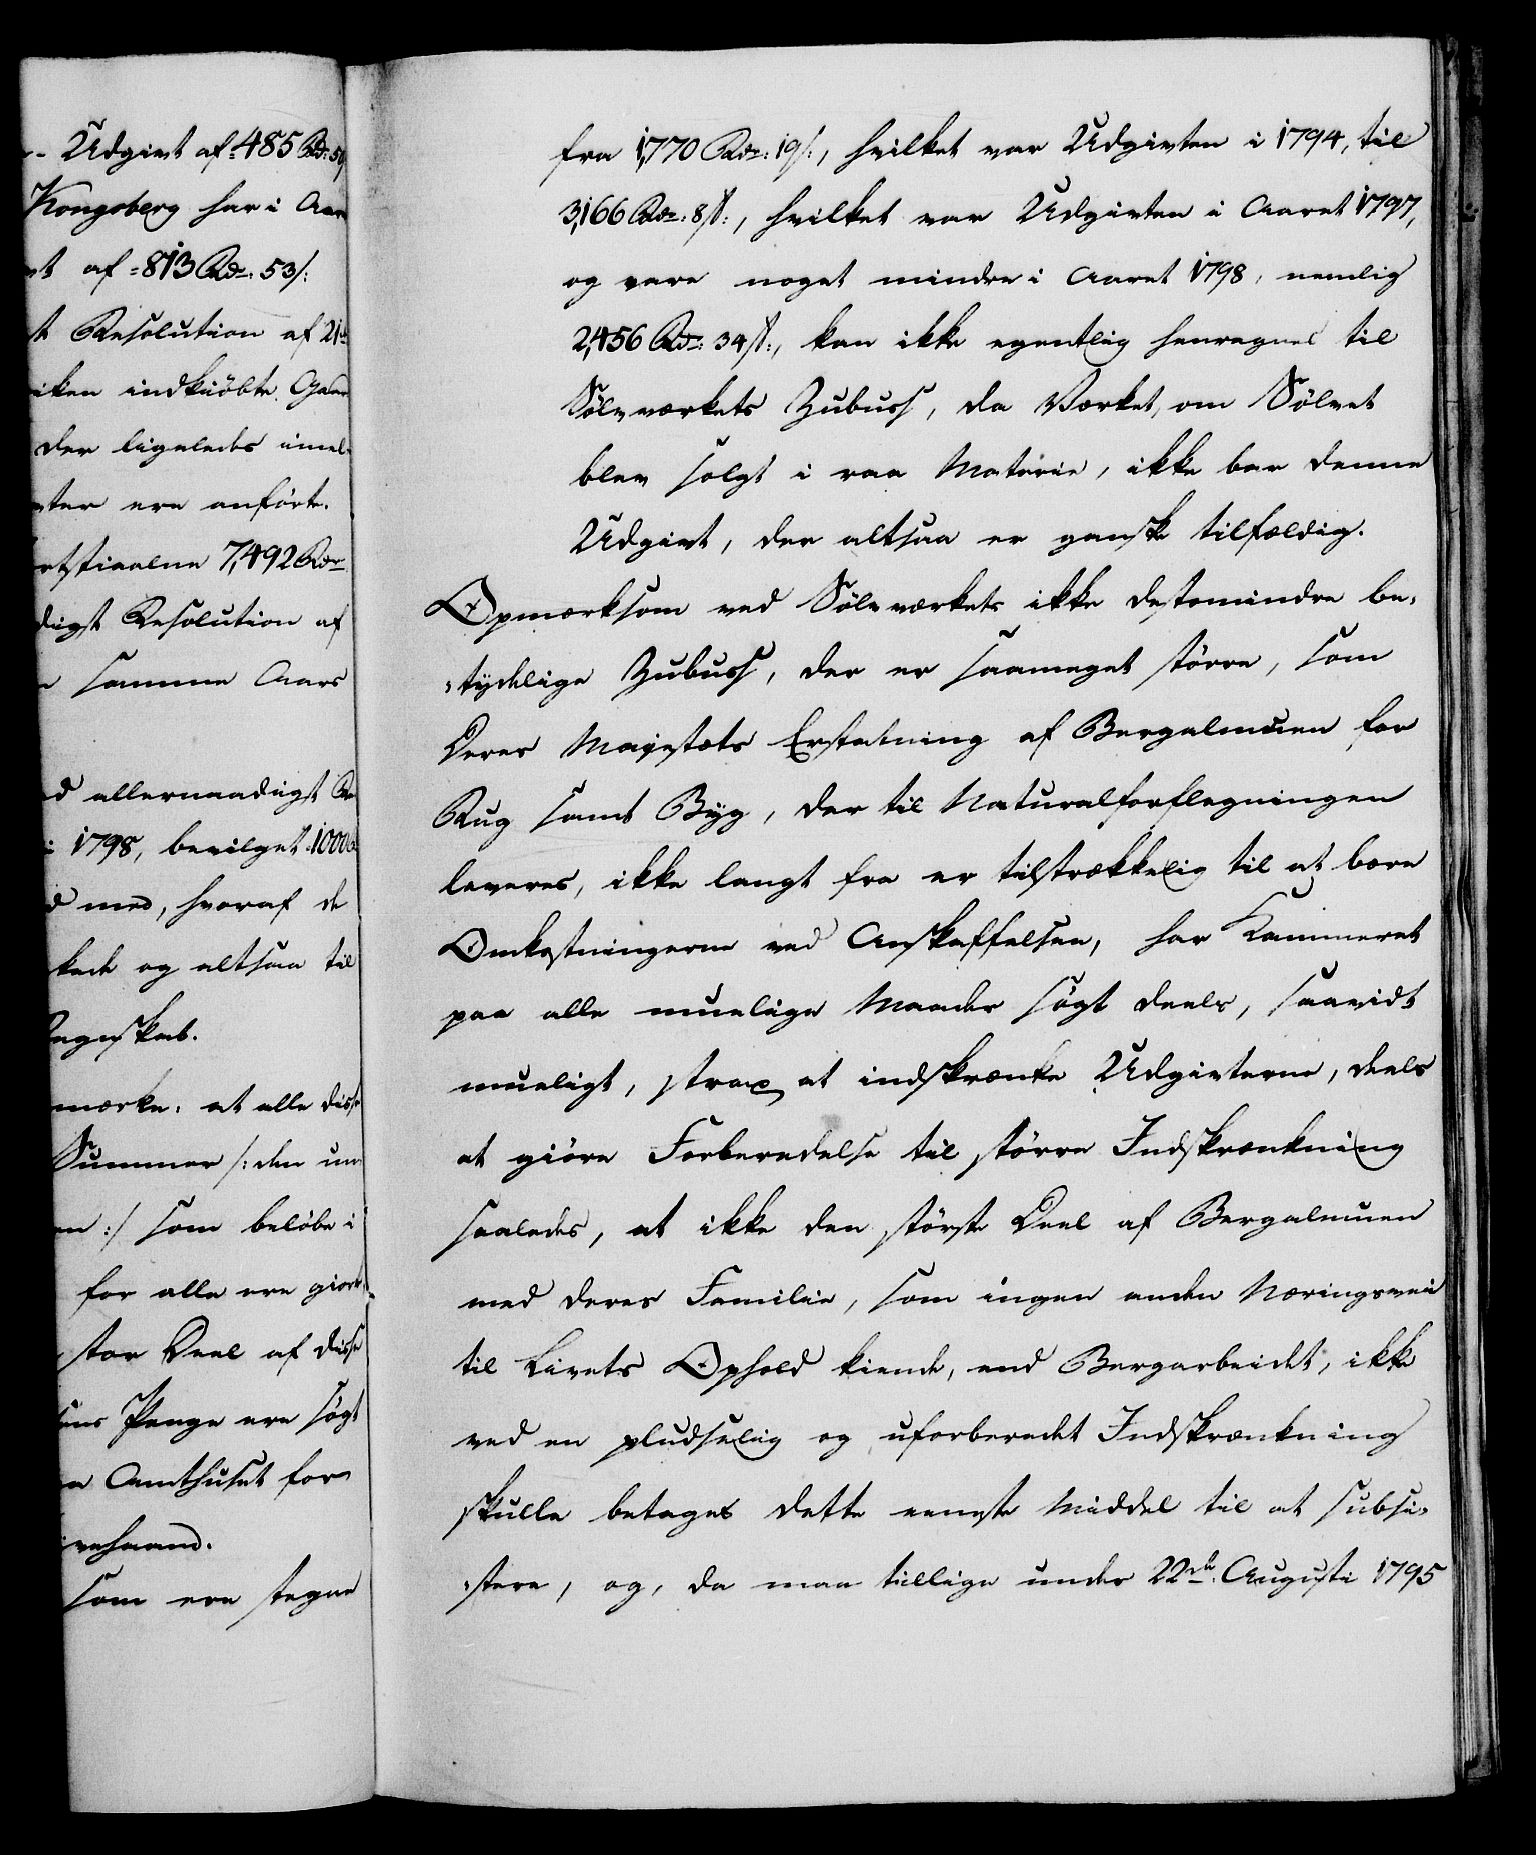 - Udgivt af 485 Rdr: 50
Kongsberg har i Aar
af 813 Rdr: 53 s:
Resolution af 21de
indkiöbte Gaar
der ligeledes imel-
ere anförte.
7,492 Rdr
Resolution af
samme Aars
allernaadigst Re
1798, bevilget 1000
med, hvoraf de
og altsaa til
Regnskab.
mærke: at alle disse
Summer /: den un
:/ som belöbe i
for alle ere giort
stor Deel af disse
Penge ere sögt
Amthuset for
som ere stegne
fra 1,770 Rdr: 19 s:, hvilket var Udgivten i 1794, til
3,166 Rdr: 8 s:, hvilket var Udgivten i Aaret 1797,
og vare noget mindre i Aaret 1798, nemlig
2,456 Rdr: 34 s:, kan ikke egentlig henregnes til
Sölvværkets Zubuss, da Værket, om Sölvet
blev solgt i raa Materie, ikke bar denne
Udgivt, der altsaa er ganske tilfældig.
Opmærksom ved Sölvværkets ikke destomindre be-
-tydelige Zubuss, der er saameget större, som
Deres Majestæts Erstatning af Bergalmuen for
Rug samt Byg, der til Naturalforflegningen
leveres, ikke langt fra er tilstrækkelig til at bære
Omkostningerne ved Anskaffelsen, har Kammeret
paa alle muelige Maader sögt deels, saavidt
mueligt, strax at indskrænke Udgivterne, deels
at giöre Forberedelse til större Indskrænkning
saaledes, at ikke den störste Deel af Bergalmuen
med deres Familie, som ingen anden Næringsvei
til Livets Ophold kiende, end Bergarbeidet, ikke
ved en pludselig og uforberedet Indskrænkning
skulle betages dette eneste Middel til at subsi-
-stere, og, da man tillige under 22de Augusti 1795